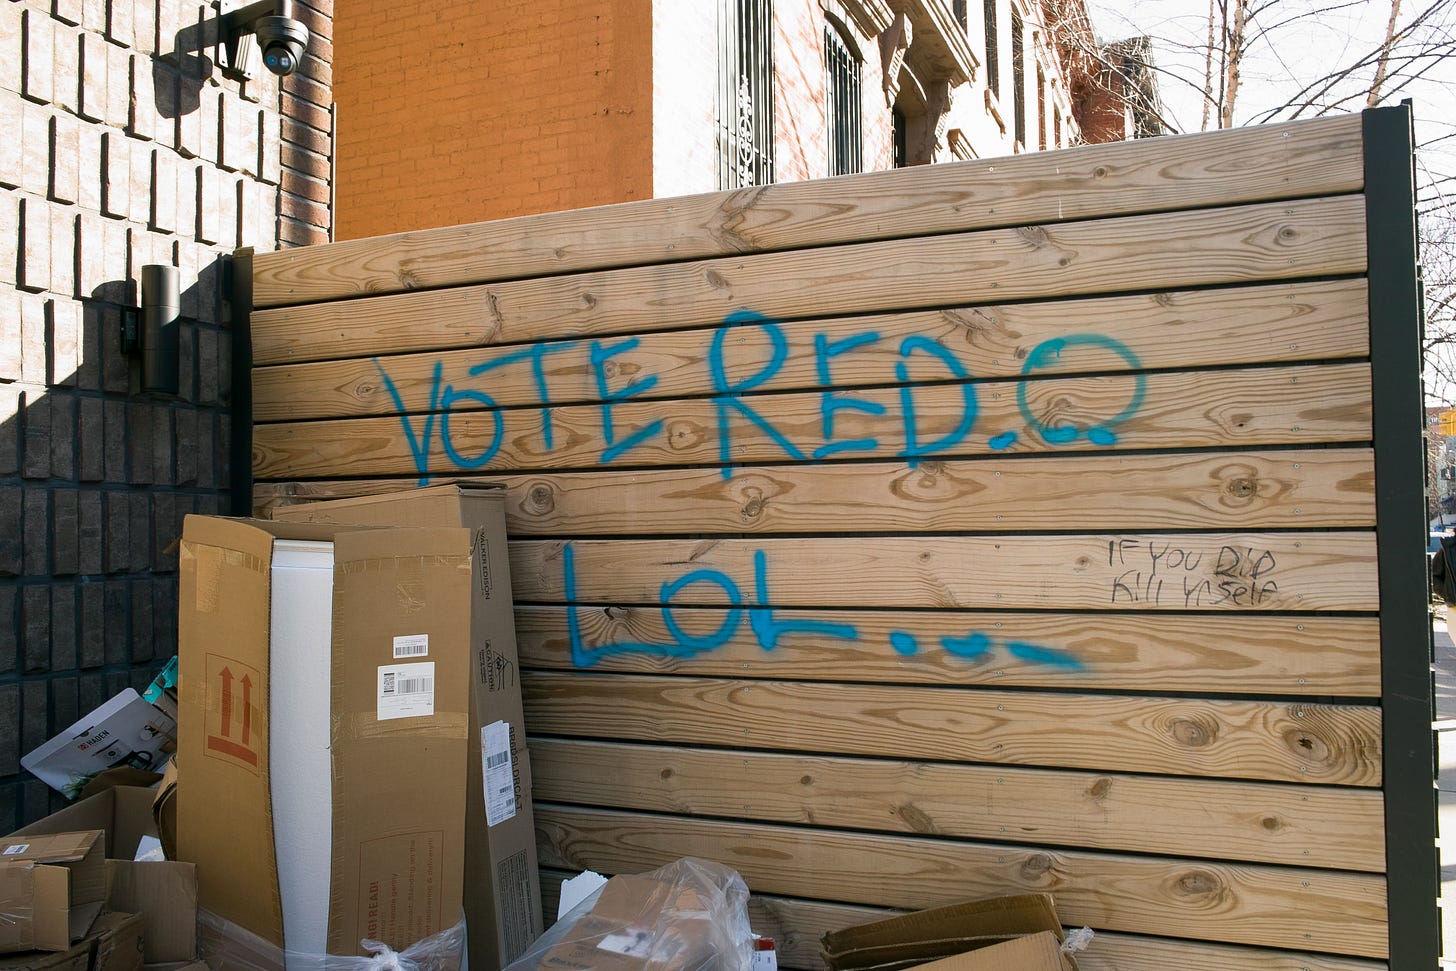 VOTE RED.
LOL...
IF YOU DID
Kill Yrself
WALKER EDISON
HADEN